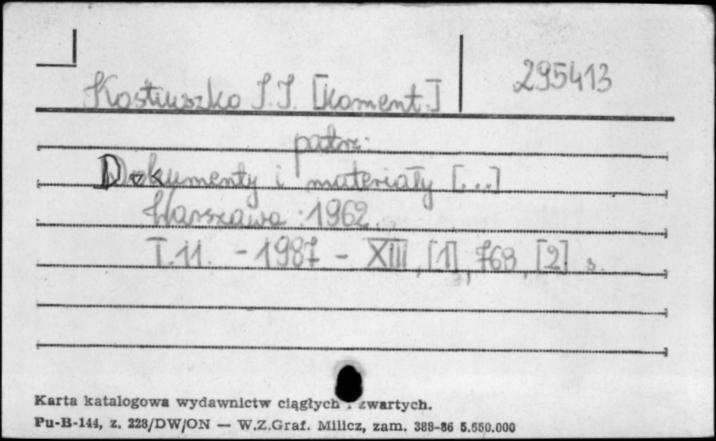 Kostiuszko I.I. [Koment.]
295413
patrz:
Dokumenty i materiały [...]
Warszawa : 1962.
T.11. - 1987 - XIII, [1], 768, [2] s.
Karta katalogowa wydawnictw ciągłych i zwartych.
Pu-B-144, z. 228/DW/ON — W.Z.Graf. Milicz, zam. 388-86 5.650.000